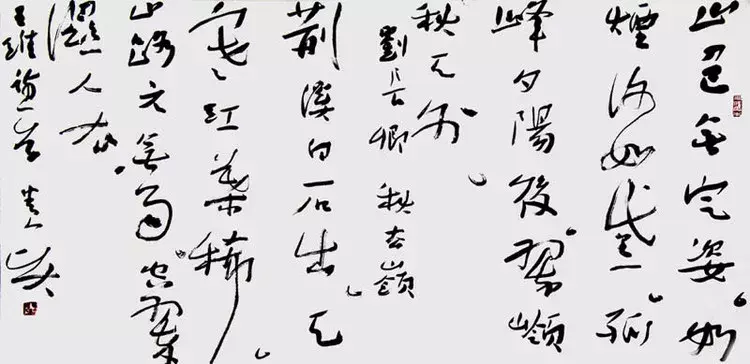 山色無定姿如
煙復如黛孤
峰夕陽後翠嶺
秋天外
劉長卿 秋雲嶺
荊溪白石出天
寒紅葉稀
山路元無雨空翠
濕人衣
王維詩一首